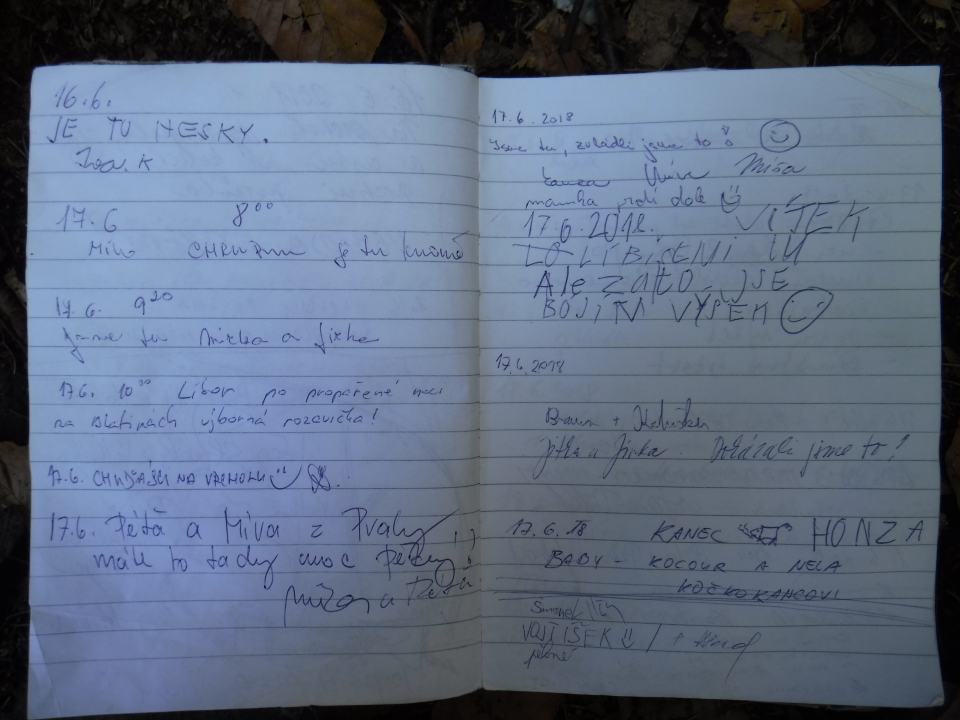 16.6.
JE TU HESKY.
17.6 8⁰⁰
je tu krásně
17.6. 9²⁰
Jsme tu Mirka a Jirka
17.6. 10³⁰ Libor po propařené noci
na Blatinách výborná rozcvička!
17.6. CHUĎÁSCI NA VRCHOLU
17.6. Péťa a Míra z Prahy
máte to tady moc pěkný!!
a Péťa
17.6.2018
Jsme tu, zvládli jsme to
Míša
mamka prdí dole
17.6.2018. VÍTEK
LÍBÍ SE MI TU
Ale zato JSE
BOJÍM VÝŠEK
17.6.2018
Jitka a Jirka. Dokázali jsme to!
17.6.18 KANEC HONZA
BADY - KOCOUR A NELA
KOČKOKANCOVI
VOJTÍŠEK
pěkné